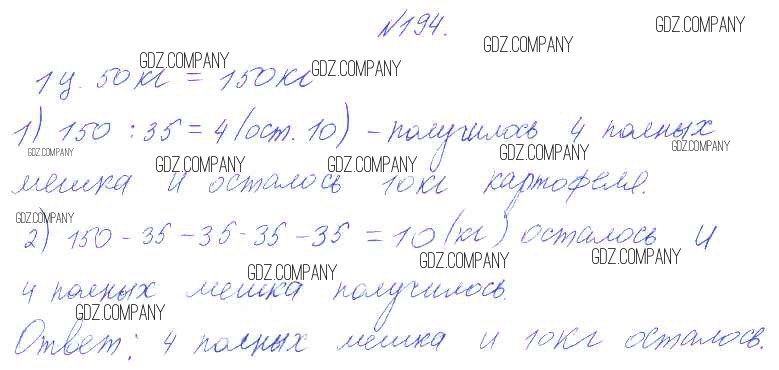 №194.
1ц. 50кг = 150кг
1) 150 : 35 = 4 (ост. 10) - получилось 4 полных
мешка и осталось 10кг картофеля.
2) 150 - 35 - 35 - 35 - 35 = 10 (кг) осталось и
4 полных мешка получилось.
Ответ: 4 полных мешка и 10кг осталось.
GDZ.COMPANY
GDZ.COMPANY
GDZ.COMPANY
GDZ.COMPANY
GDZ.COMPANY
GDZ.COMPANY
GDZ.COMPANY
GDZ.COMPANY
GDZ.COMPANY
GDZ.COMPANY
GDZ.COMPANY
GDZ.COMPANY
GDZ.COMPANY
GDZ.COMPANY